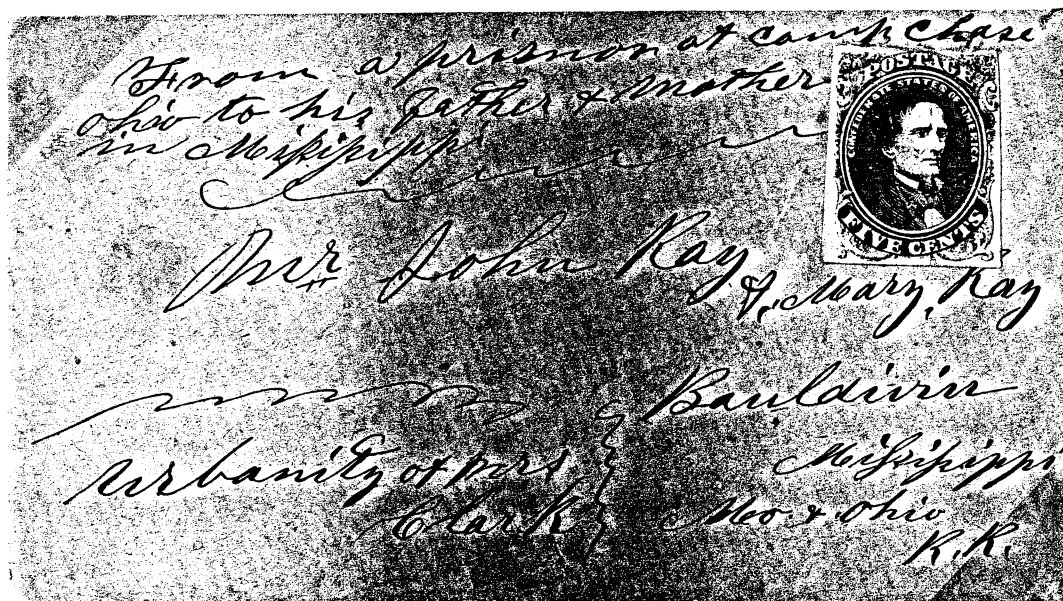 From a prisnor at camp Chase
ohio to his father & Mother
in Missisippi
POSTAGE
CONFEDERATE STATES OF AMERICA
FIVE CENTS
Mr John Ray
& Mary, Ray
Bauldwin
Missisippi
Urbanity of Mrs
Clark
Mo & Ohio
R.R.